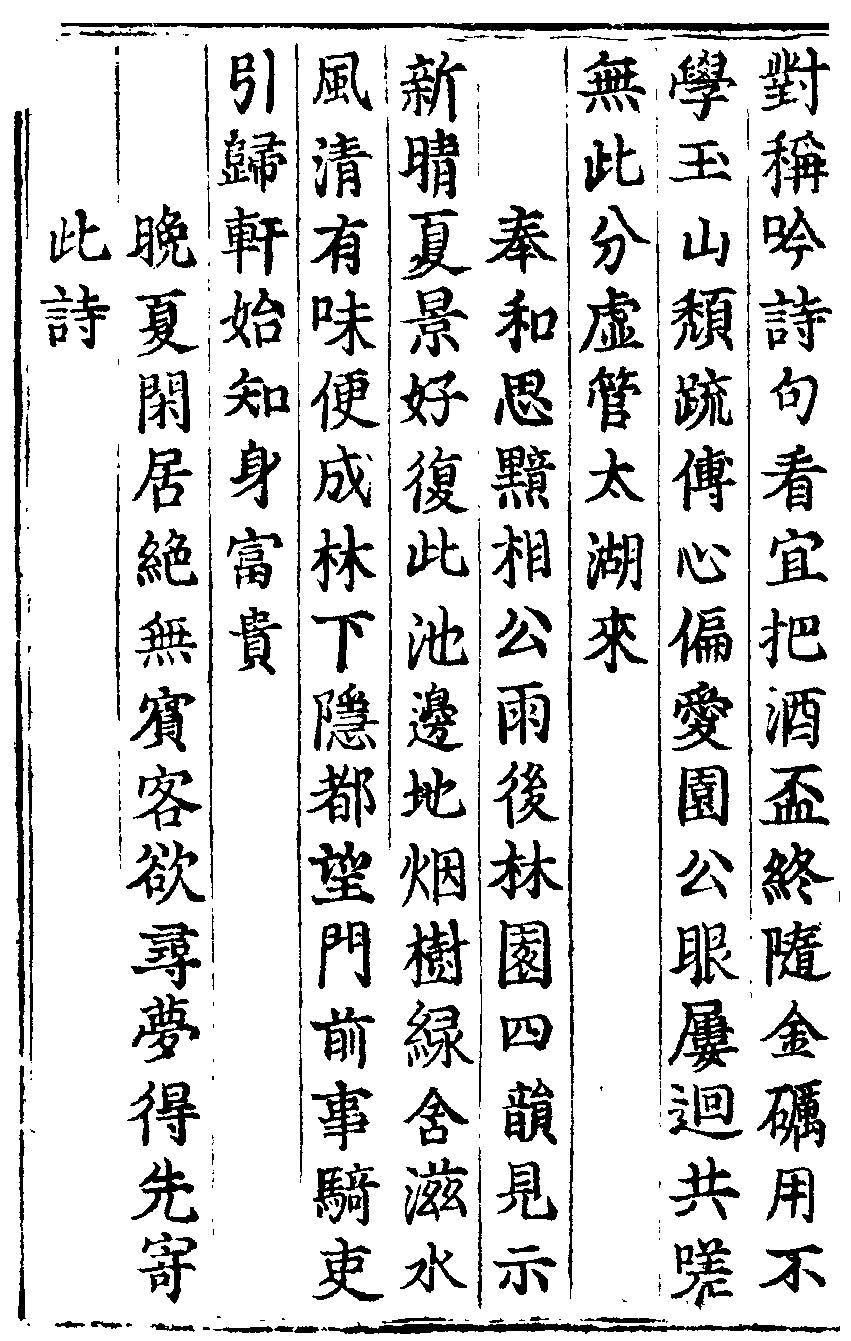 對稱吟詩句看宜把酒盃終隨金礪用不
學玉山頹疏傅心偏愛園公眼屢迴共嗟
無此分虛管太湖來
奉和思黯相公雨後林園四韻見示
新晴夏景好復此池邊地烟樹綠含滋水
風清有味便成林下隱都望門前事騎吏
引歸軒始知身富貴
晚夏閑居絶無賓客欲尋夢得先寄
此詩